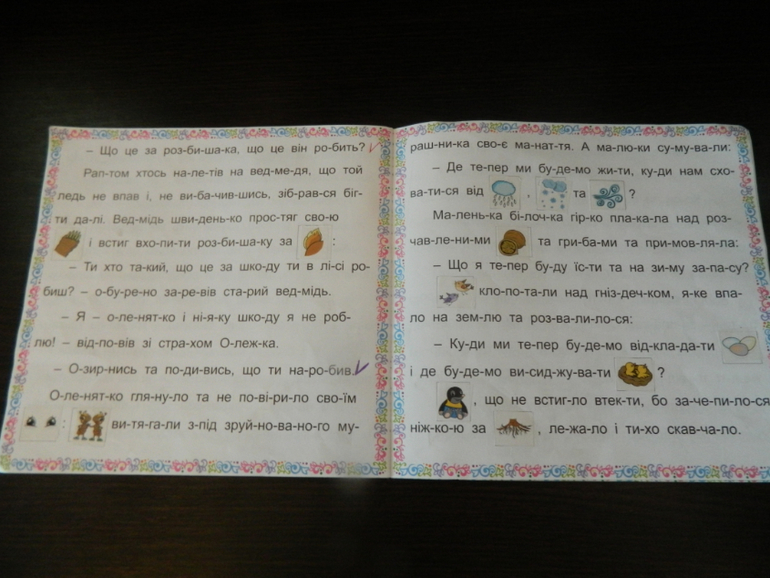 – Що це за роз-би-ша-ка, що це він ро-бить?
Рап-том хтось на-ле-тів на вед-ме-дя, що той
ледь не впав і, не ви-ба-чив-шись, зіб-рав-ся біг-
ти да-лі. Вед-мідь шви-день-ко прос-тяг сво-ю
і встиг вхо-пи-ти роз-би-ша-ку за :
– Ти хто та-кий, що це за шко-ду ти в лі-сі ро-
биш? – о-бу-ре-но за-ре-вів ста-рий вед-мідь.
– Я – о-ле-нят-ко і ні-я-ку шко-ду я не роб-
лю! – від-по-вів зі стра-хом О-леж-ка.
– О-зир-нись та по-ди-вись, що ти на-ро-бив.
О-ле-нят-ко гля-ну-ло та не по-ві-ри-ло сво-їм
: ви-тя-га-ли з-під зруй-но-ва-но-го му-
раш-ни-ка сво-є ма-нат-тя. А ма-лю-ки су-му-ва-ли:
– Де те-пер ми бу-де-мо жи-ти, ку-ди нам схо-
ва-ти-ся від , та ?
Ма-лень-ка бі-лоч-ка гір-ко пла-ка-ла над роз-
чав-ле-ни-ми та гри-ба-ми та при-мов-ля-ла:
– Що я те-пер бу-ду їс-ти та на зи-му за-па-су?
кло-по-та-ли над гніз-деч-ком, я-ке впа-
ло на зем-лю та роз-ва-ли-ло-ся:
– Ку-ди ми те-пер бу-де-мо від-кла-да-ти
і де бу-де-мо ви-сид-жу-ва-ти ?
, що не встиг-ло втек-ти, бо за-че-пи-ло-ся
ніж-ко-ю за , ле-жа-ло і ти-хо скав-ча-ло.